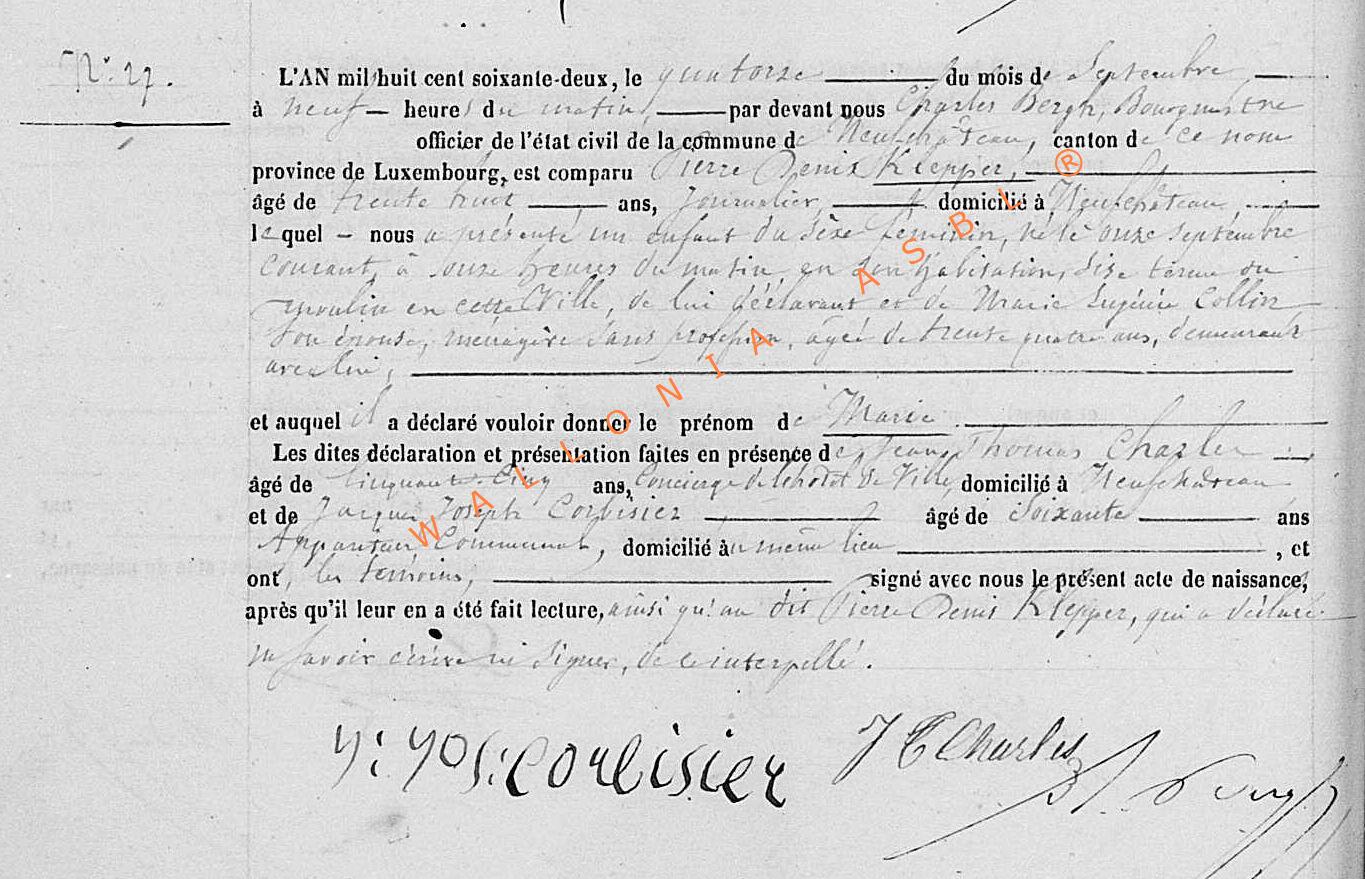 N° 27.
L'AN mil huit cent soixante-deux, le quatorze du mois de Septembre,
à neuf heures du matin, par devant nous Charles Bergh, Bourgmestre
officier de l'état civil de la commune de Neufchâteau, canton de ce nom
province de Luxembourg, est comparu Pierre Denis Klepper,
âgé de trente huit ans, Journalier, domicilié à Neufchâteau,
lequel nous a présenté un enfant du sèxe feminin, né le onze Septembre
courant, à onze heures du matin en son habitation, dise terme du
moulin en cette Ville, de lui déclarant et de Marie Eugénie Collin
son épouse, ménagère sans profession, agée de trente quatre ans, demeurant
avec lui,
et auquel il a déclaré vouloir donner le prénom de Marie
Les dites déclaration et présentation faites en présence de Jean Thomas Charles
âgé de Cinquante-Cinq ans, Concierge de l'hotel de Ville, domicilié à Neufchâteau
et de Jacques Joseph Corbisier âgé de Soixante ans
Appariteur Communal, domicilié au même lieu , et
ont, les temoins, signé avec nous le présent acte de naissance,
après qu'il leur en a été fait lecture, ainsi qu'au dit Pierre Denis Klepper, qui a déclaré
ne savoir écrire ni signer, de ce interpellé.
J: JOS: CORbisier J T Charles
WALLONIA ASBL ®